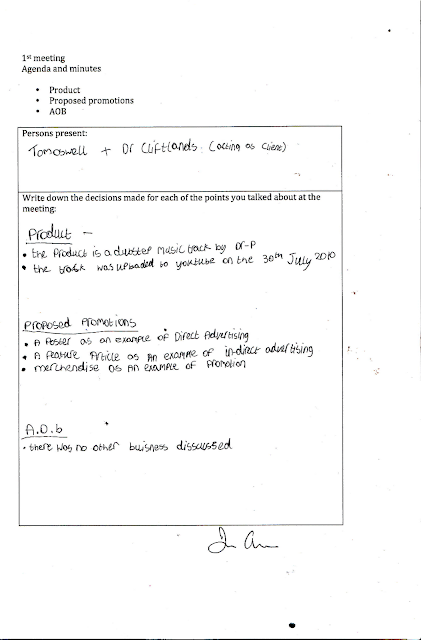 1st meeting
Agenda and minutes
• Product
• Proposed promotions
• AOB
Persons present:
Tomoswell + Dr Cliftlands. (acting as Client)
Write down the decisions made for each of the points you talked about at the
meeting:
Product -
• the Product is a music track by Dr-P
• the track was uploaded to youtube on the 30th July 2010
Proposed Promotions
• A Poster as an example of Direct Advertising
• A feature Article as An example of in-direct advertising
• merchendise as An example of Promotion
A.O.b
• there was no other buisness disscussed